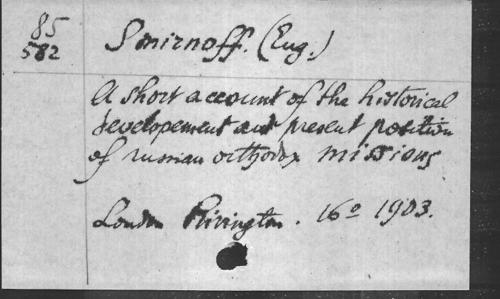 85
582
Smirnoff. (Eug.)
A short account of the historical
developement and present position
of russian orthodox missions
London Rivington. 16º 1903.